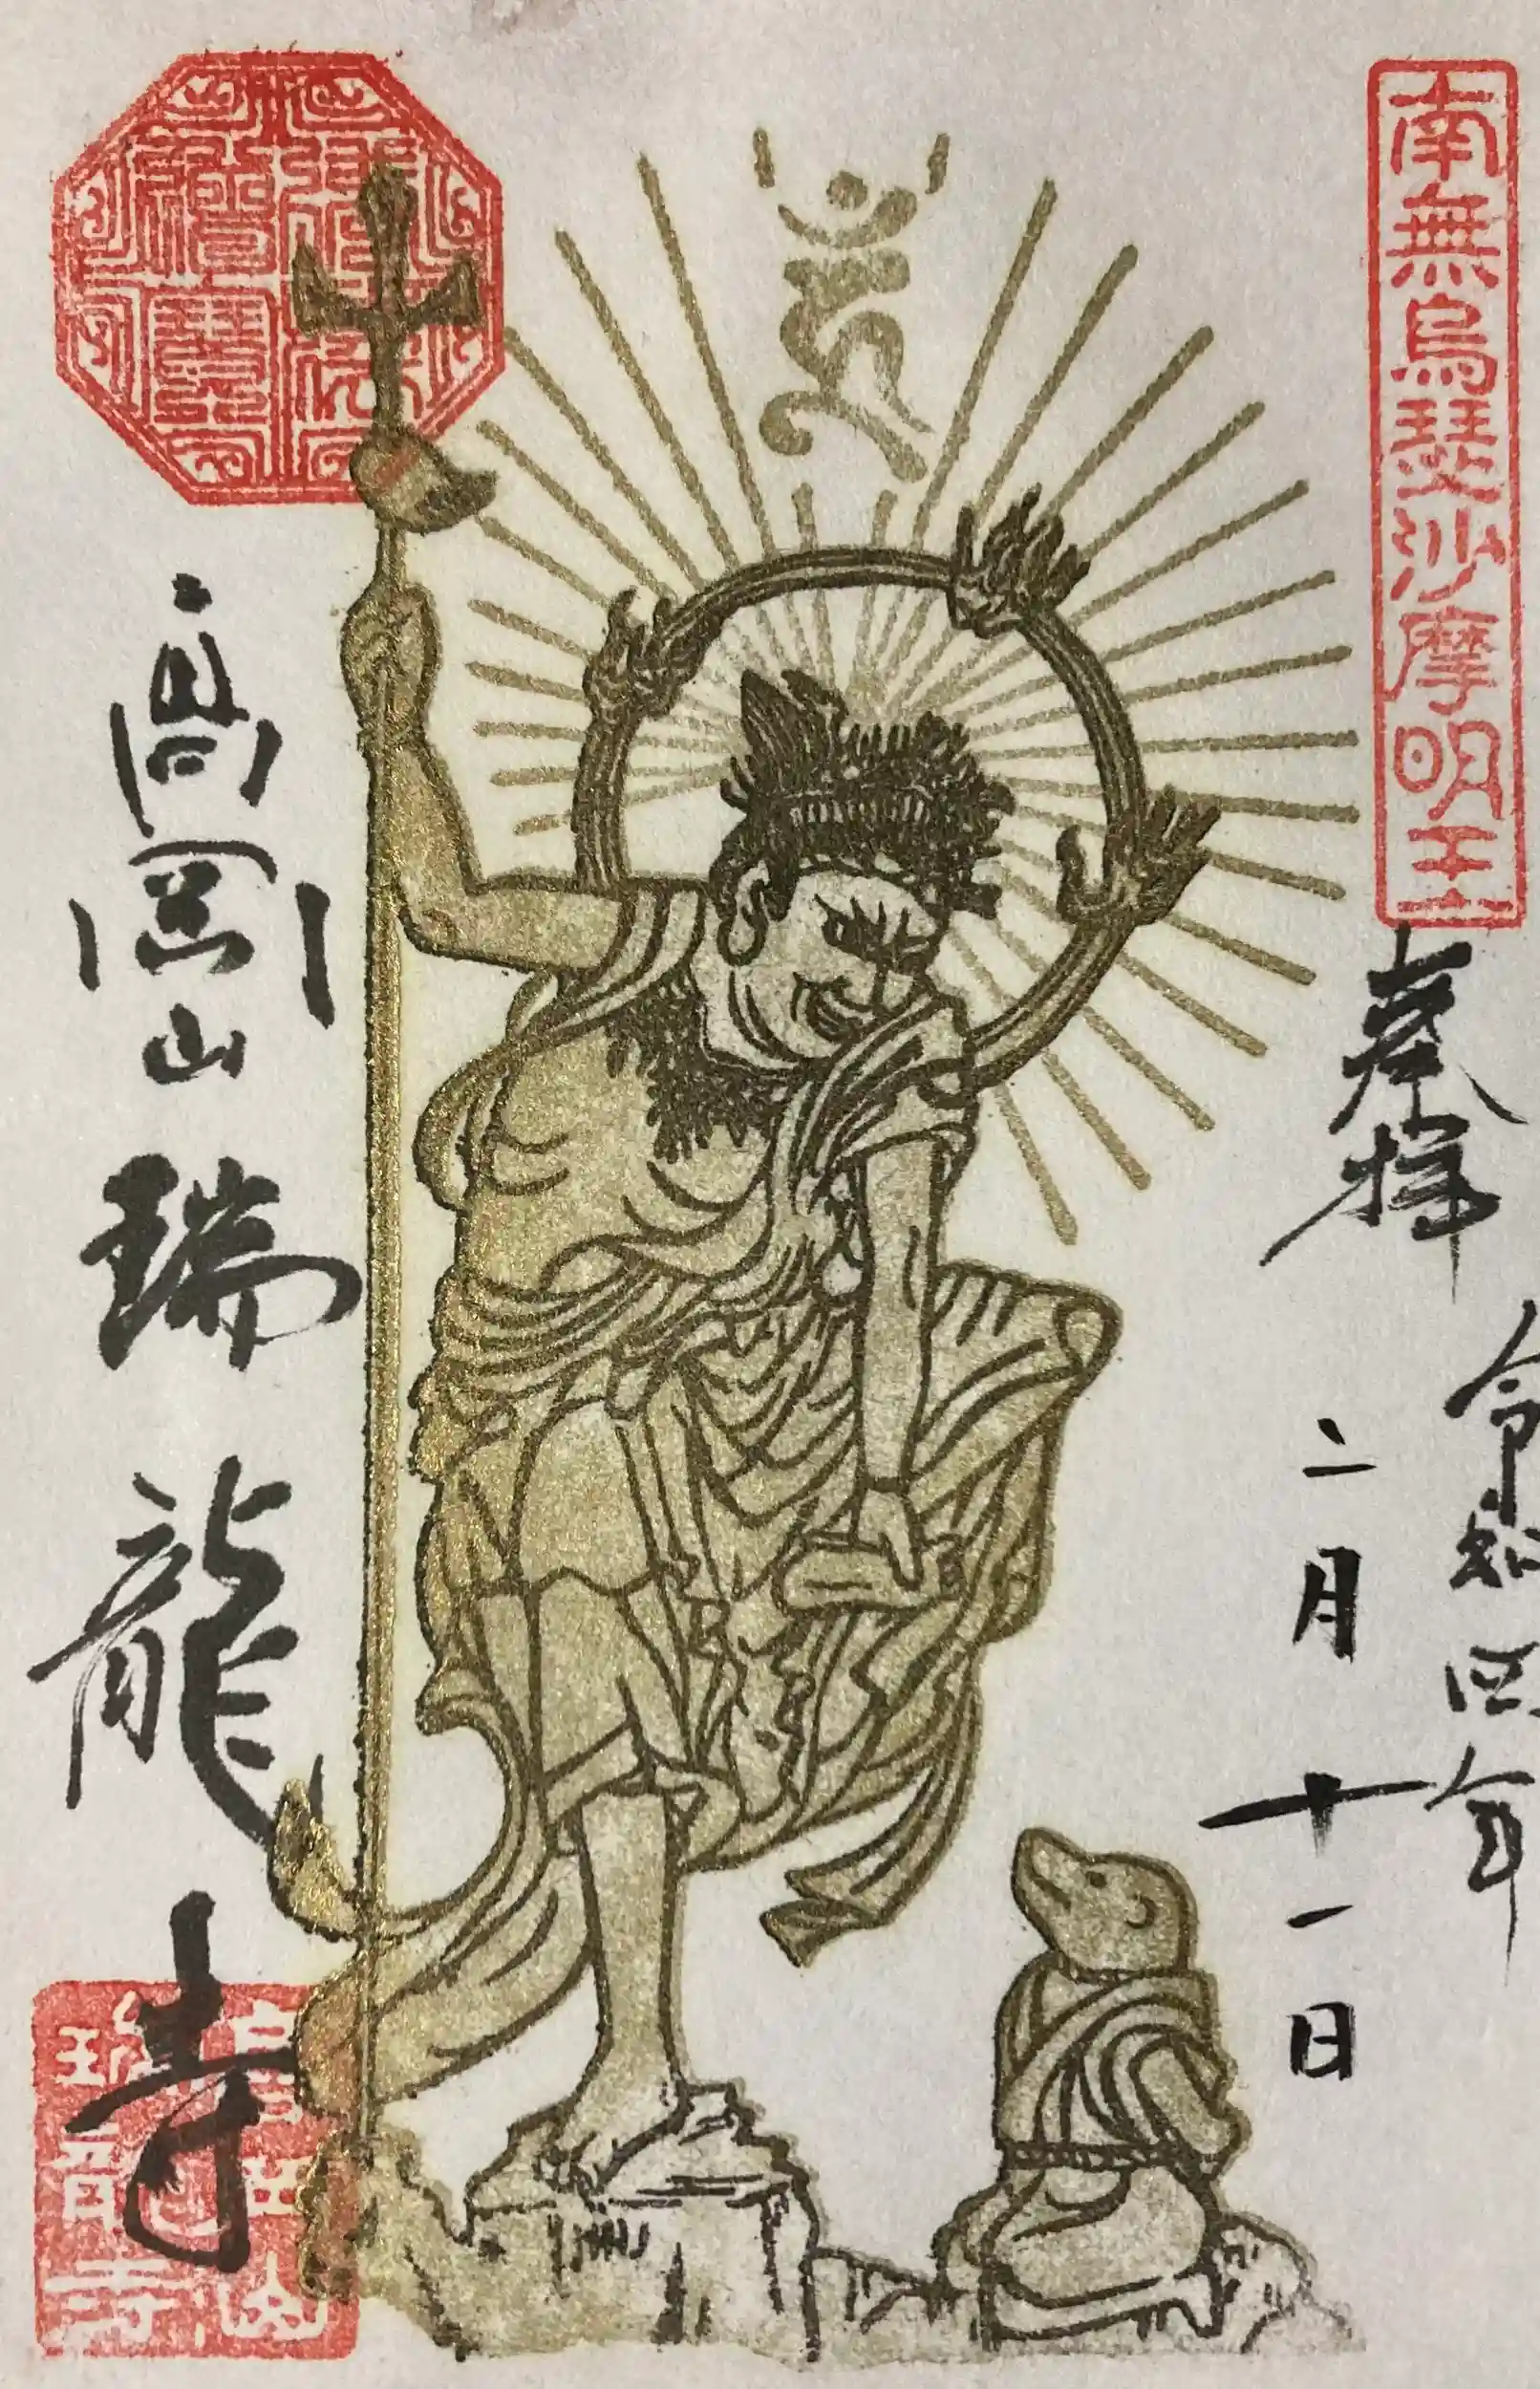 南無烏瑟沙摩明王
奉拝
令和四年
二月十一日
高岡山瑞龍寺
佛法僧寶
高岡山
瑞龍寺